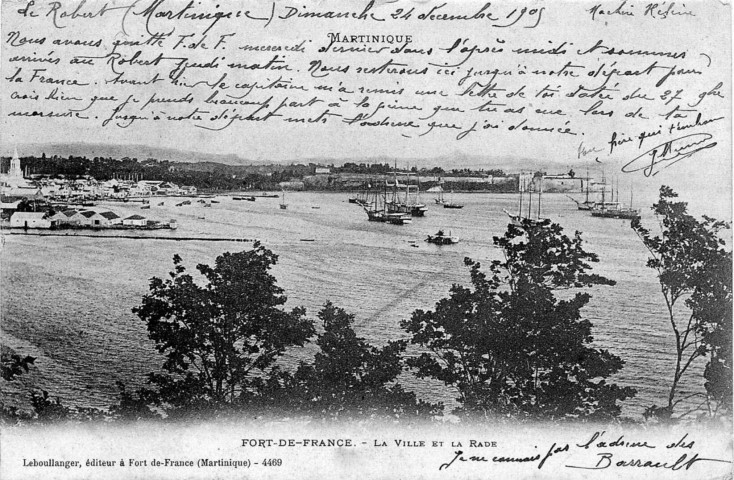 Le Robert (Martinique) Dimanche 24 décembre 1905
MARTINIQUE
Nous avons quitté F. de F. mercredi dernier dans l'après midi et sommes
arrivés au Robert jeudi matin. Nous resterons ici jusqu'à notre départ pour
la France. Avant hier le capitaine m'a remis une lettre de toi datée du 27 9bre
crois bien que je prends beaucoup part à la peine que tu as eue lors de ta
. Jusqu'à notre départ mets l'adresse que j'ai donnée.
Ton frère qui t'embrasse
FORT-DE-FRANCE. - LA VILLE ET LA RADE
Leboullanger, éditeur à Fort de-France (Martinique) - 4469
Je ne connais pas l'adresse des
Barrault